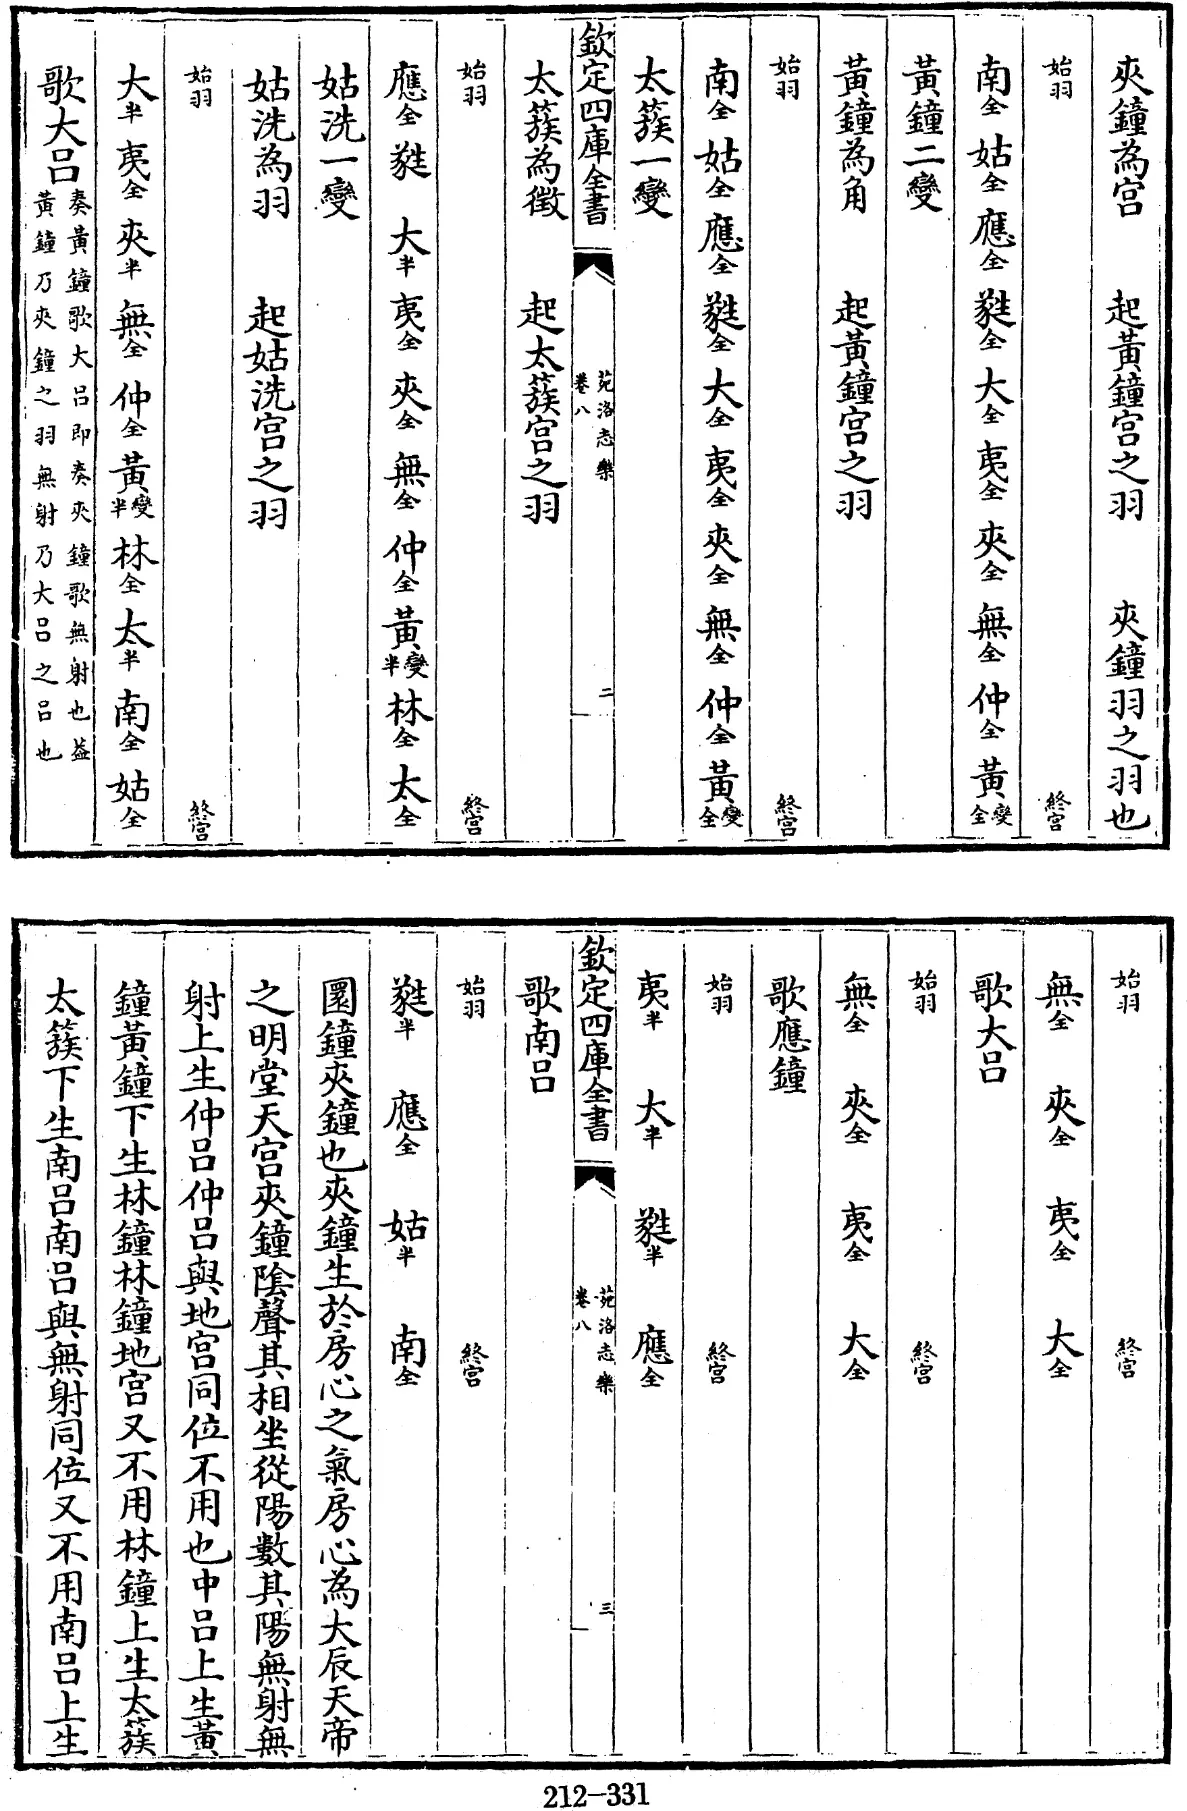 夾鐘為宫　起黃鐘宫之羽　夾鐘羽之羽也
始羽　終宫
南全 姑全 應全 蕤全 大全 夷全 夾全 無全 仲全 黃變全
黃鐘二變
黃鐘為角　起黃鐘宫之羽
始羽　終宫
南全 姑全 應全 蕤全 大全 夷全 夾全 無全 仲全 黃變全
太蔟一變
欽定四庫全書　苑洛志樂 卷八　二
太蔟為徵　起太蔟宫之羽
始羽　終宫
應全 蕤 大半 夷全 夾全 無全 仲全 黃變半 林全 太全
姑洗一變
姑洗為羽　起姑洗宫之羽
始羽　終宫
大半 夷全 夾半 無全 仲全 黃變半 林全 太半 南全 姑全
歌大呂 奏黃鐘歌大呂即奏夾鐘歌無射也益黃鐘乃夾鐘之羽無射乃大呂之呂也
始羽　終宫
無全 夾全 夷全 大全
歌大呂
始羽　終宫
無全 夾全 夷全 大全
歌應鐘
始羽　終宫
夷半 大半 蕤半 應全
欽定四庫全書　苑洛志樂 卷八　三
歌南呂
始羽　終宫
蕤半 應全 姑半 南全
圜鐘夾鐘也夾鐘生於房心之氣房心為大辰天帝
之明堂天宫夾鐘陰聲其相坐從陽數其陽無射無
射上生仲呂仲呂與地宫同位不用也中呂上生黃
鐘黃鐘下生林鐘林鐘地宫又不用林鐘上生太蔟
太蔟下生南呂南呂與無射同位又不用南呂上生
212-331